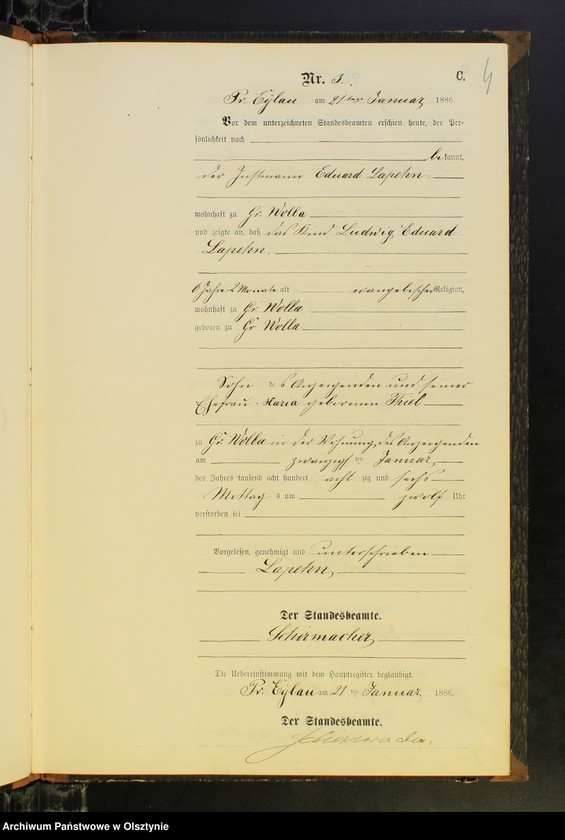 Nr. 3.
C.
4
Pr. Eylau am 21ten Januar 1886.
Vor dem unterzeichneten Standesbeamten erschien heute, der Per-
sönlichkeit nach
bekannt,
der Instmann Eduard Lapehn
wohnhaft zu Gr. Wolla
und zeigte an, daß das Kind Ludwig Eduard
Lapehn
6 Jahre 2 Monate alt evangelischer Religion,
wohnhaft zu Gr. Wolla
geboren zu Gr. Wolla
Sohn des Anzeigenden und seiner
Ehefrau Maria geborenen Thiel
zu Gr. Wolla in der Wohnung des Anzeigenden
am zwanzigsten Januar
des Jahres tausend acht hundert achtzig und sechs
Mittags um zwölf Uhr
verstorben sei
Vorgelesen, genehmigt und unterschrieben
Lapehn,
Der Standesbeamte.
Schirmacher,
Die Uebereinstimmung mit dem Hauptregister beglaubigt.
Pr. Eylau am 21ten Januar 1886.
Der Standesbeamte.
Schirmacher.
Archiwum Państwowe w Olsztynie